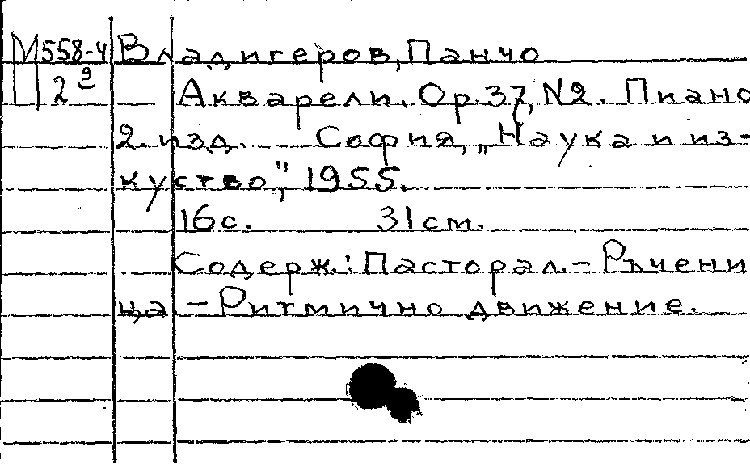 М558-4 Владигеров, Панчо
2 9 Акварели. Ор. 37, №2. Пиано
2. изд. София, „Наука и из-
куство", 1955.
16 с. 31 см.
Содерж.: Пасторал. – Ръчени
ца – Ритмично движение.